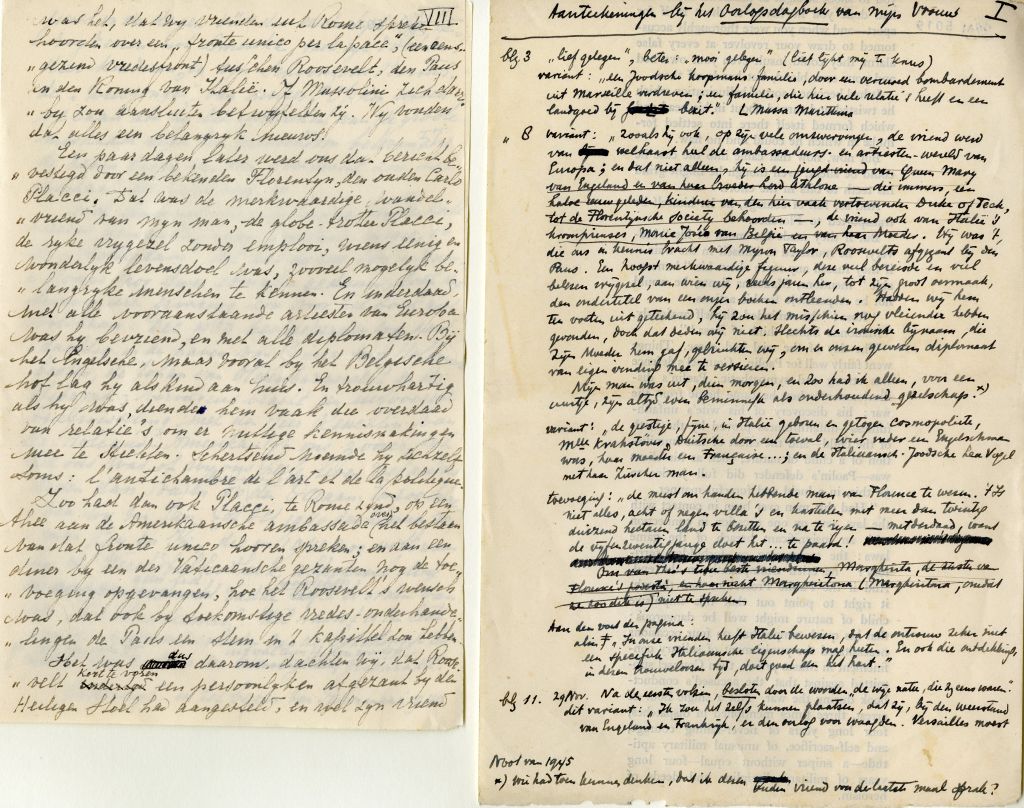 VIII.
was het, dat wy vrienden uit Rome spreken
hoorden over een „fronte unico per la pace", (eenens-
„gezind vredesfront) tusschen Roosevelt, den Paus
en den Koning van Italië. Of Mussolini zich daar-
„by zou aansluiten betwyfelden zy. Wy vonden
dat alles een belangryk nieuws!
Een paar dagen later werd ons dat bericht be-
„vestigd door een bekenden Florentyn, den ouden Carlo
Placci. Dat was de merkwaardige, wandel-
„vriend van myn man, de globe-trotter Placci,
de ryke vrygezel zonder emplooi, wiens eenig en
wonderlyk levensdoel was, zooveel mogelyk be-
„langryke menschen te kennen. En inderdaad,
met alle vooraanstaande artiesten van Europa
was hy bevriend, en met alle diplomaten. By
het Engelsche, maar vooral by het Belgische
hof lag hy als kind aan huis. En trouwhartig
als hy was, diende hem vaak die overdaad
van relatie's om er nuttige kennismakingen
mee te stichten. Schertsend noemde hy zichzelf
soms: l'antichambre de l'art et de la politique.
Zoo had dan ook Placci, te Rome zynd, op een
thee aan de Amerikaansche ambassade over het bestaan
van dat fronte unico hooren spreken; en aan een
diner by een der Vaticaansche gezanten nog de toe-
„voeging opgevangen, hoe het Roosevelt's wensch
was, dat ook by toekomstige vredes-onderhande-
„lingen de Paus een stem in 't kapittel zou hebben.
Het was dus daarom, dachten wy, dat Roose-
„velt kort te voren een persoonlyken afgezant by den
Heiligen Stoel had aangesteld, en wel zyn vriend
Aanteekeningen bij het Oorlogsdagboek van mijn Vrouw I
blz 3 „lief gelegen", beter: mooi gelegen (lief lijkt mij te knus)
variant: „een Joodsche koopmans-familie, door een verwoed bombardement
uit Marseille verdreven; een familie, die hier vele relatie's heeft en een
landgoed bij bezit." (Massa Marittima
„ 8 variant: „zooals hij ook, op zijn vele omzwervingen, de vriend werd
van welhaast heel de ambassadeurs- en artiesten-wereld van
Europa; en dat niet alleen, hij is een jeugd-vriend van Queen Mary
van Engeland en van haar broeder Lord Athlone — die immers, een
halve eeuw geleden, kinderen van den hier vaak vertoevenden Duke of Teck,
tot de Florentijnsche society behoorden —, de vriend ook van Italië's
kroonprinses, Marie José van België en van haar Moeder. Hij was 't,
die ons in kennis bracht met Myron Taylor, Roosevelts afgezant bij den
Paus. Een hoogst merkwaardige figuur, deze veel bereisde en veel
belezen vrijgezel, aan wien wij, zes jaren her, tot zijn groot vermaak,
den ondertitel van een onzer boeken ontleenden. Hadden wij hem
ten voeten uit geteekend, hij zou het misschien nog vleiender hebben
gevonden, doch dat deden wij niet. Slechts de ironische bijnaam, die
zijn Moeder hem gaf, gebruikten wij, om er onzen gewezen diplomaat
van eigen vinding mee te versieren.
Mijn man was uit, dien morgen, en zoo had ik alleen, voor een
uurtje, zijn altijd even beminnelijk als onderhoudend gezelschap. *)
variant: „de geestige, fijne, in Italië geboren en getogen cosmopoliete,
Mlle Krahstöver, Duitsche door een toeval, wier vader een Engelschman
was, haar moeder een Française...; en de Italiaansch-Joodsche Lea Vogel
met haar Zürcher man.
toevoeging: „de meest om handen hebbende man van Florence te wezen. 't Is
niet alles, acht of negen villa's en kasteelen met meer dan twintig
duizend hectaren land te bezitten en na te rijen — metterdaad, want
de vijfenzeventigjarige doet het... te paard!
Om van Margherita, de zuster van
en haar nicht Margheritona (Margheritona, omdat
ze zoo dik is) niet te spreken
Aan den voet der pagina:
alin. „In onze vrienden heeft Italië bewezen, dat de ontrouw zeker niet
een specifiek Italiaansche eigenschap mag heeten. En ook die ontdekking,
in dezen trouweloozen tijd, doet goed aan het hart."
blz 11. 29 Nov. Na de eerste volzin, besloten door de woorden „de wijze natie, die zij eens waren".
dit variant: „Ik zou het zelfs kunnen plaatsen, dat zij, bij den weerstand
van Engeland en Frankrijk, er den oorlog voor waagden. Versailles moest
Noot van 1945
*) Wie had toen kunnen denken, dat ik dezen ouden vriend voor de laatste maal sprak?